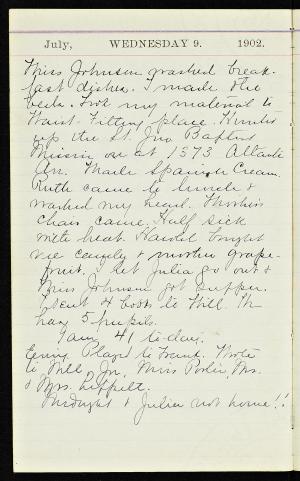 July, WEDNESDAY 9. 1902.
Miss Johnson washed break-
fast dishes. I made the
beds. Took my material to
Waist Fitting place. Hunted
up the St. Jno Baptist
Mission one at 1373 Atlantic
Av. Made Spanish Cream.
Ruth came to lunch &
washed my head.
chair came. Half sick
with heat. Harold bought
me candy & another grape-
fruit. I let Julia go out &
Miss Johnson got supper.
I sent 4 books to Will. He
has 5 pupils.
I am 41 to-day.
Evening Played to Frank. Wrote
to Will, Jr., Miss Porter, Mr.
& Mrs.
Midnight & Julia not home!!